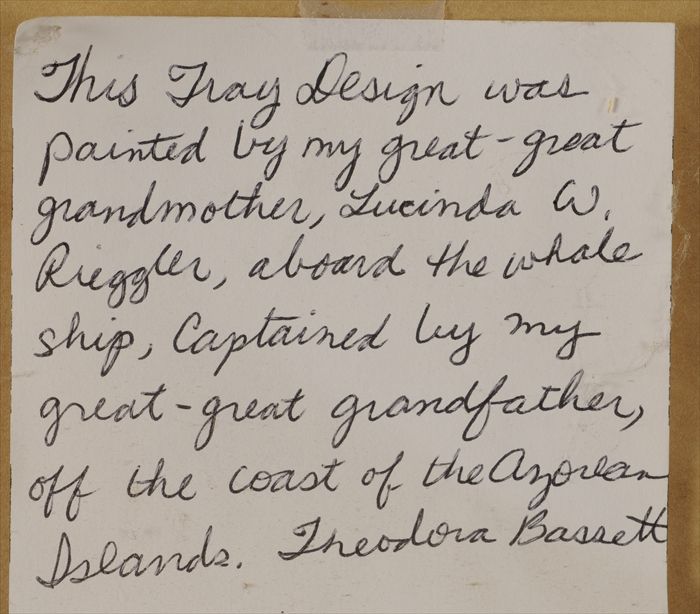 This Tray Design was
painted by my great-great
grandmother, Lucinda W.
Rieggler, aboard the whale
ship, Captained by my
great-great grandfather,
off the coast of the Azorean
Islands. Theodora Bassett